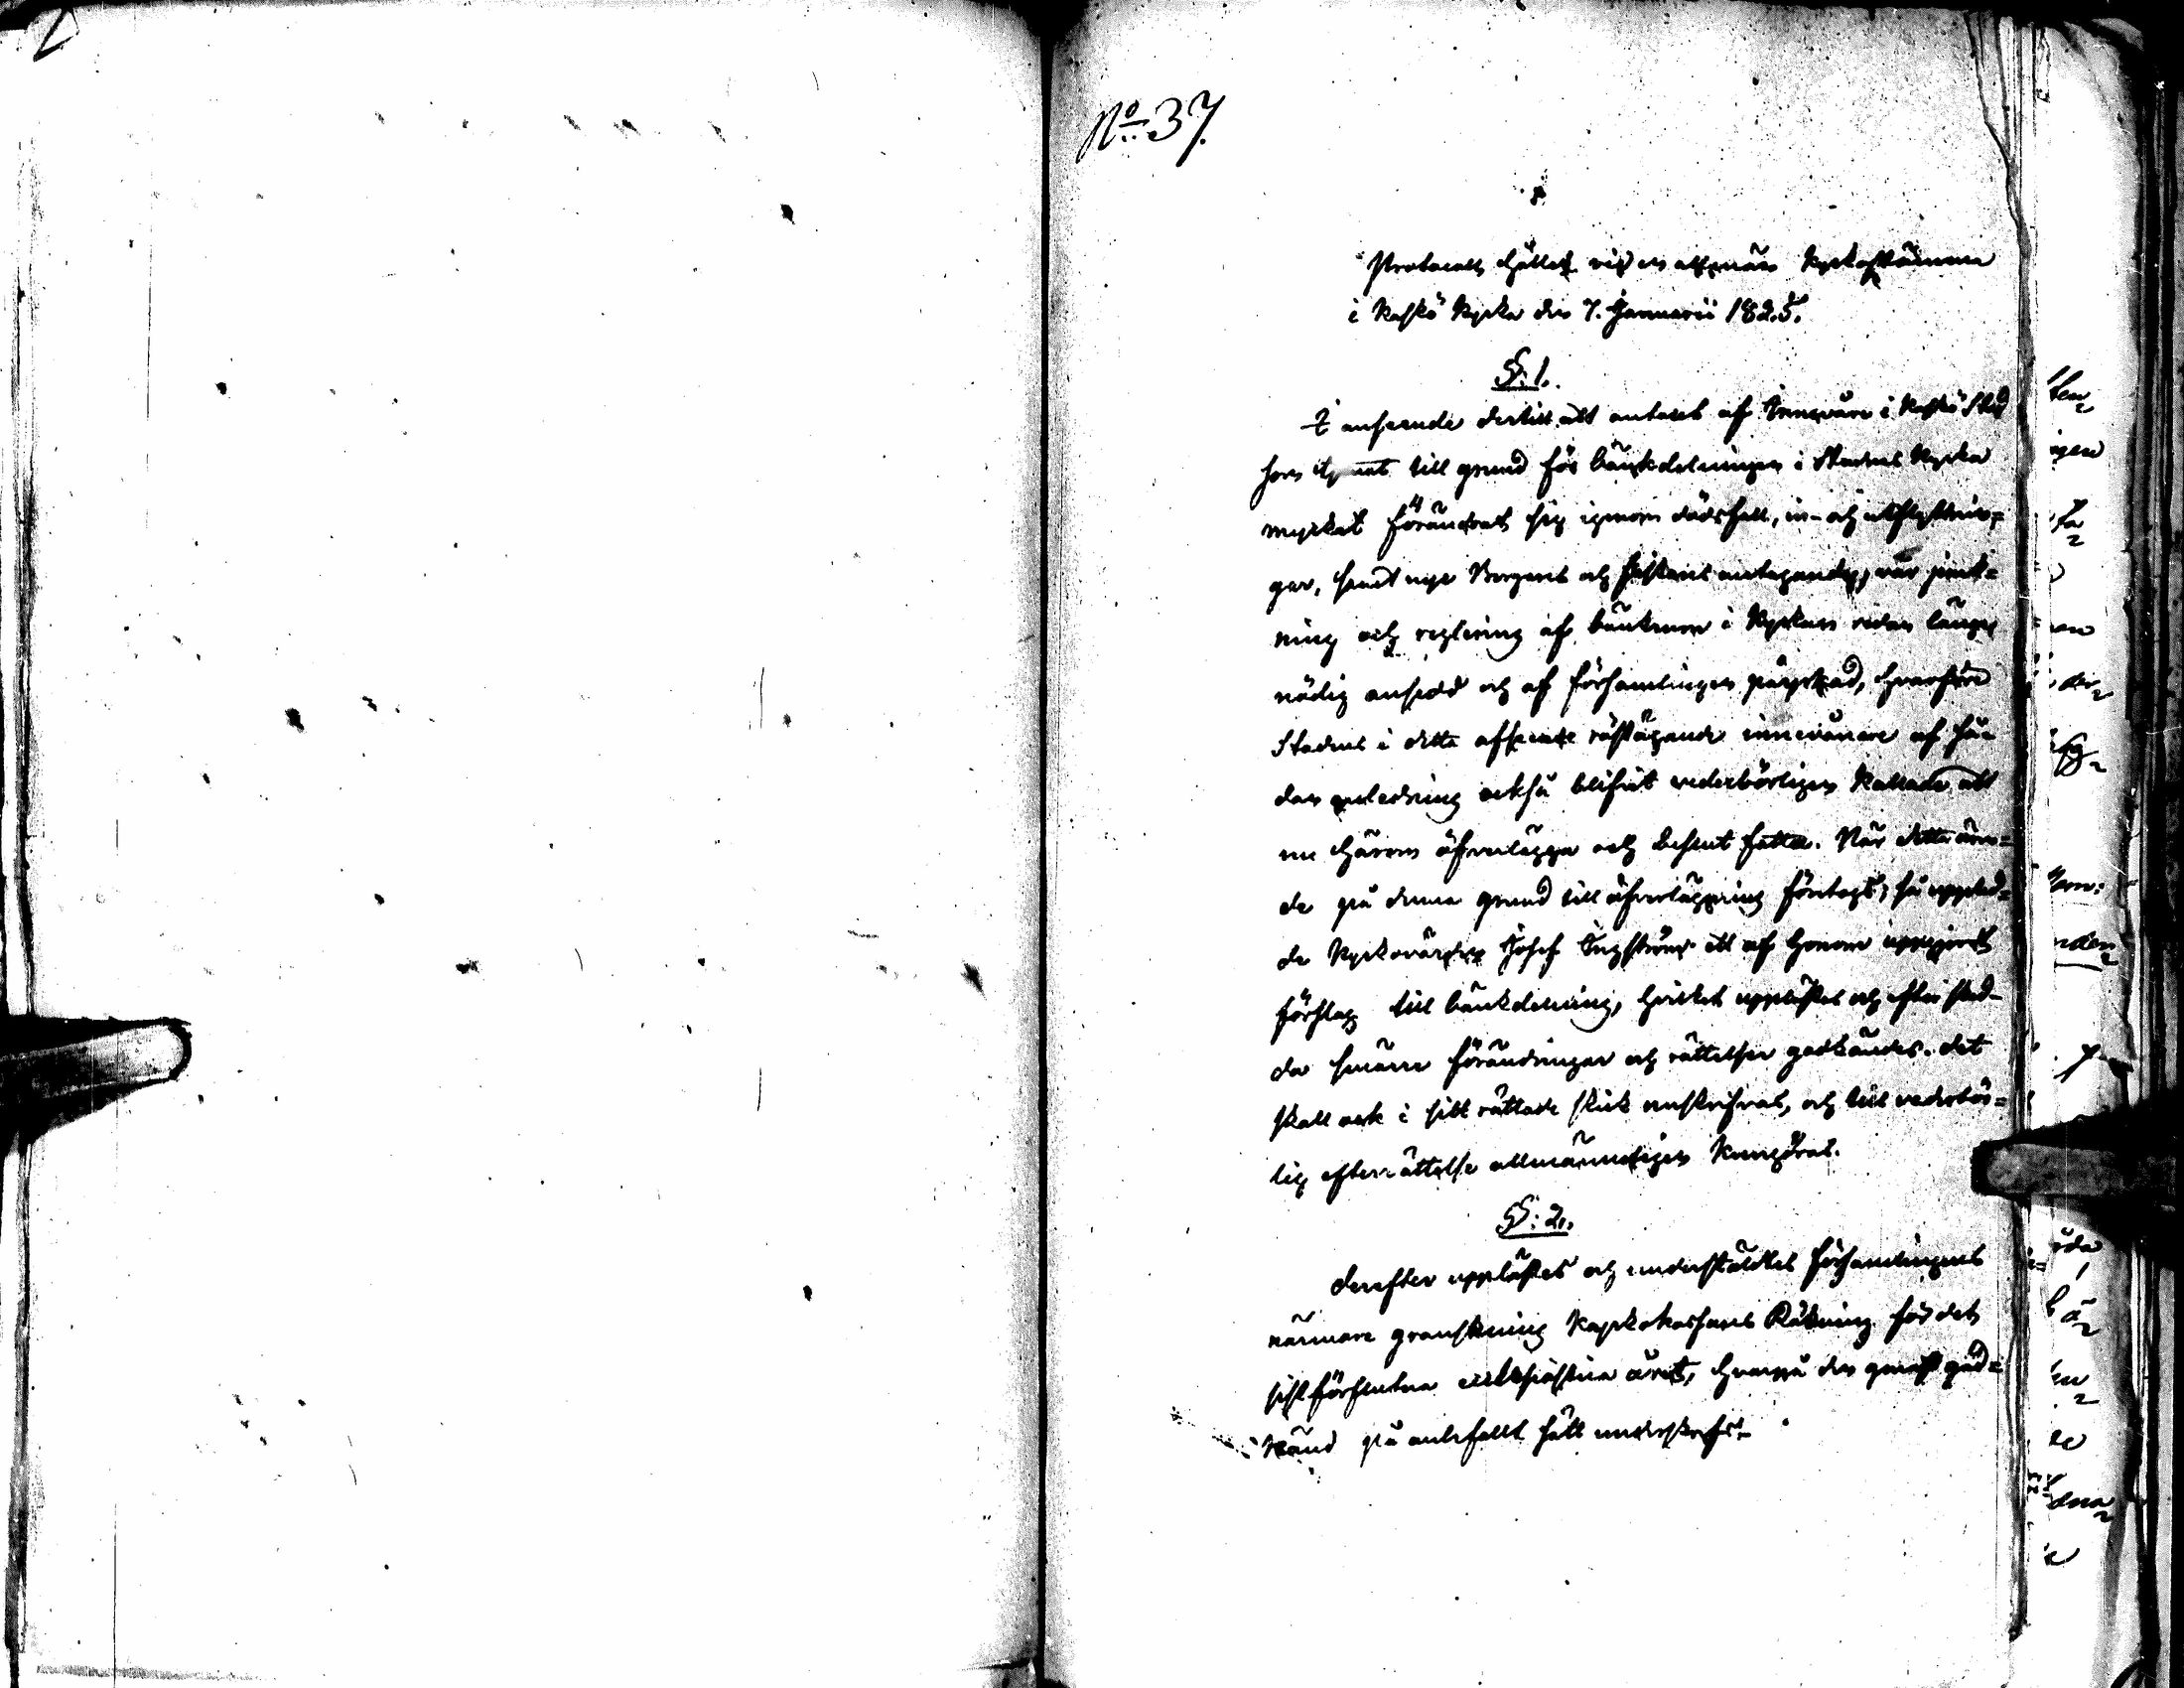 No 37.
Protocoll hållet vid en allmän Kyrkostämma
i Kaskö Kyrka den 7. Januarii 1825.
§. 1.
I anseende dertill att antalet af Innevånare i Kaskö Stad
som till grund för bänkdelningen i Stadens Kyrka
myckat förändrat sig igenom dödsfall, in- och utflyttnin=
gar, samt nye Borgares och antagande, var jemk=
ning och reglering af bänkarne i Kyrkan redan länge
nödig ansedd och af församlingen påyrkad, hvarföre
Stadens i detta afseende röstägande innevånare af så-
dan anledning också blifvit vederbörligen kallade att
nu härom öfverlägga och beslut fatta. När detta ären=
de på denna grund till öfverläggning företogs, så uppläs=
de Kyrkovärden Josef Engström ett af honom uppgjordt
förslag till bänkdelning, hvilket upplästes och efter sked-
da smärre förändringar och rättelser godkändes. det
skall ock i sitt rättade skick renskrifvas, och till vederbör=
lig efterrättelse allmänneligen kungöras.
§: 2.
Derefter upplästes och underställtes församlingens
närmare granskning Kyrkokassans Räkning för det
sistförflutna ecclesiastika året, hvarpå den genast god=
känd på anbefallt sätt underskrefs.